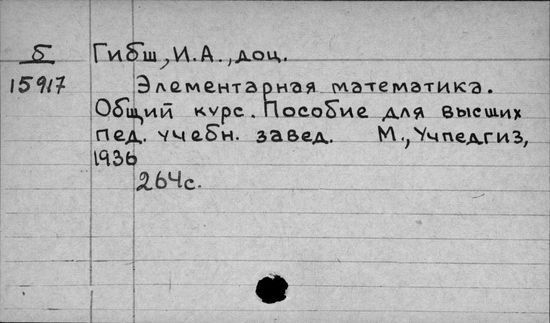 Б Гибш, И.А., доц.
15917 Элементарная математика.
Общий курс. Пособие для высших
пед. учебн. завед. М., Учпедгиз,
1936
264с.